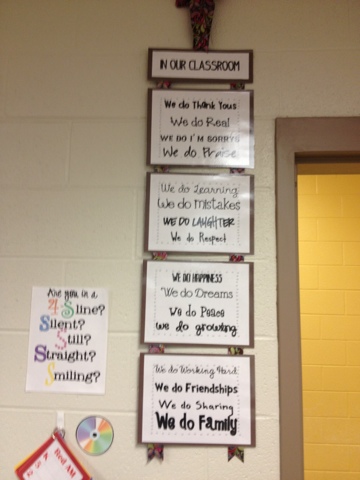 IN OUR CLASSROOM
We do Thank Yous
We do Real
WE DO I'M SORRYS
We do Praise
We do Learning
We do mistakes
WE DO LAUGHTER
We do Respect
WE DO HAPPINESS
We do Dreams
We do Peace
we do growing
We do Working Hard
We do Friendships
We do Sharing
We do Family
Are you in a
4 Sline?
Silent?
Still?
Straight?
Smiling?
Red AM